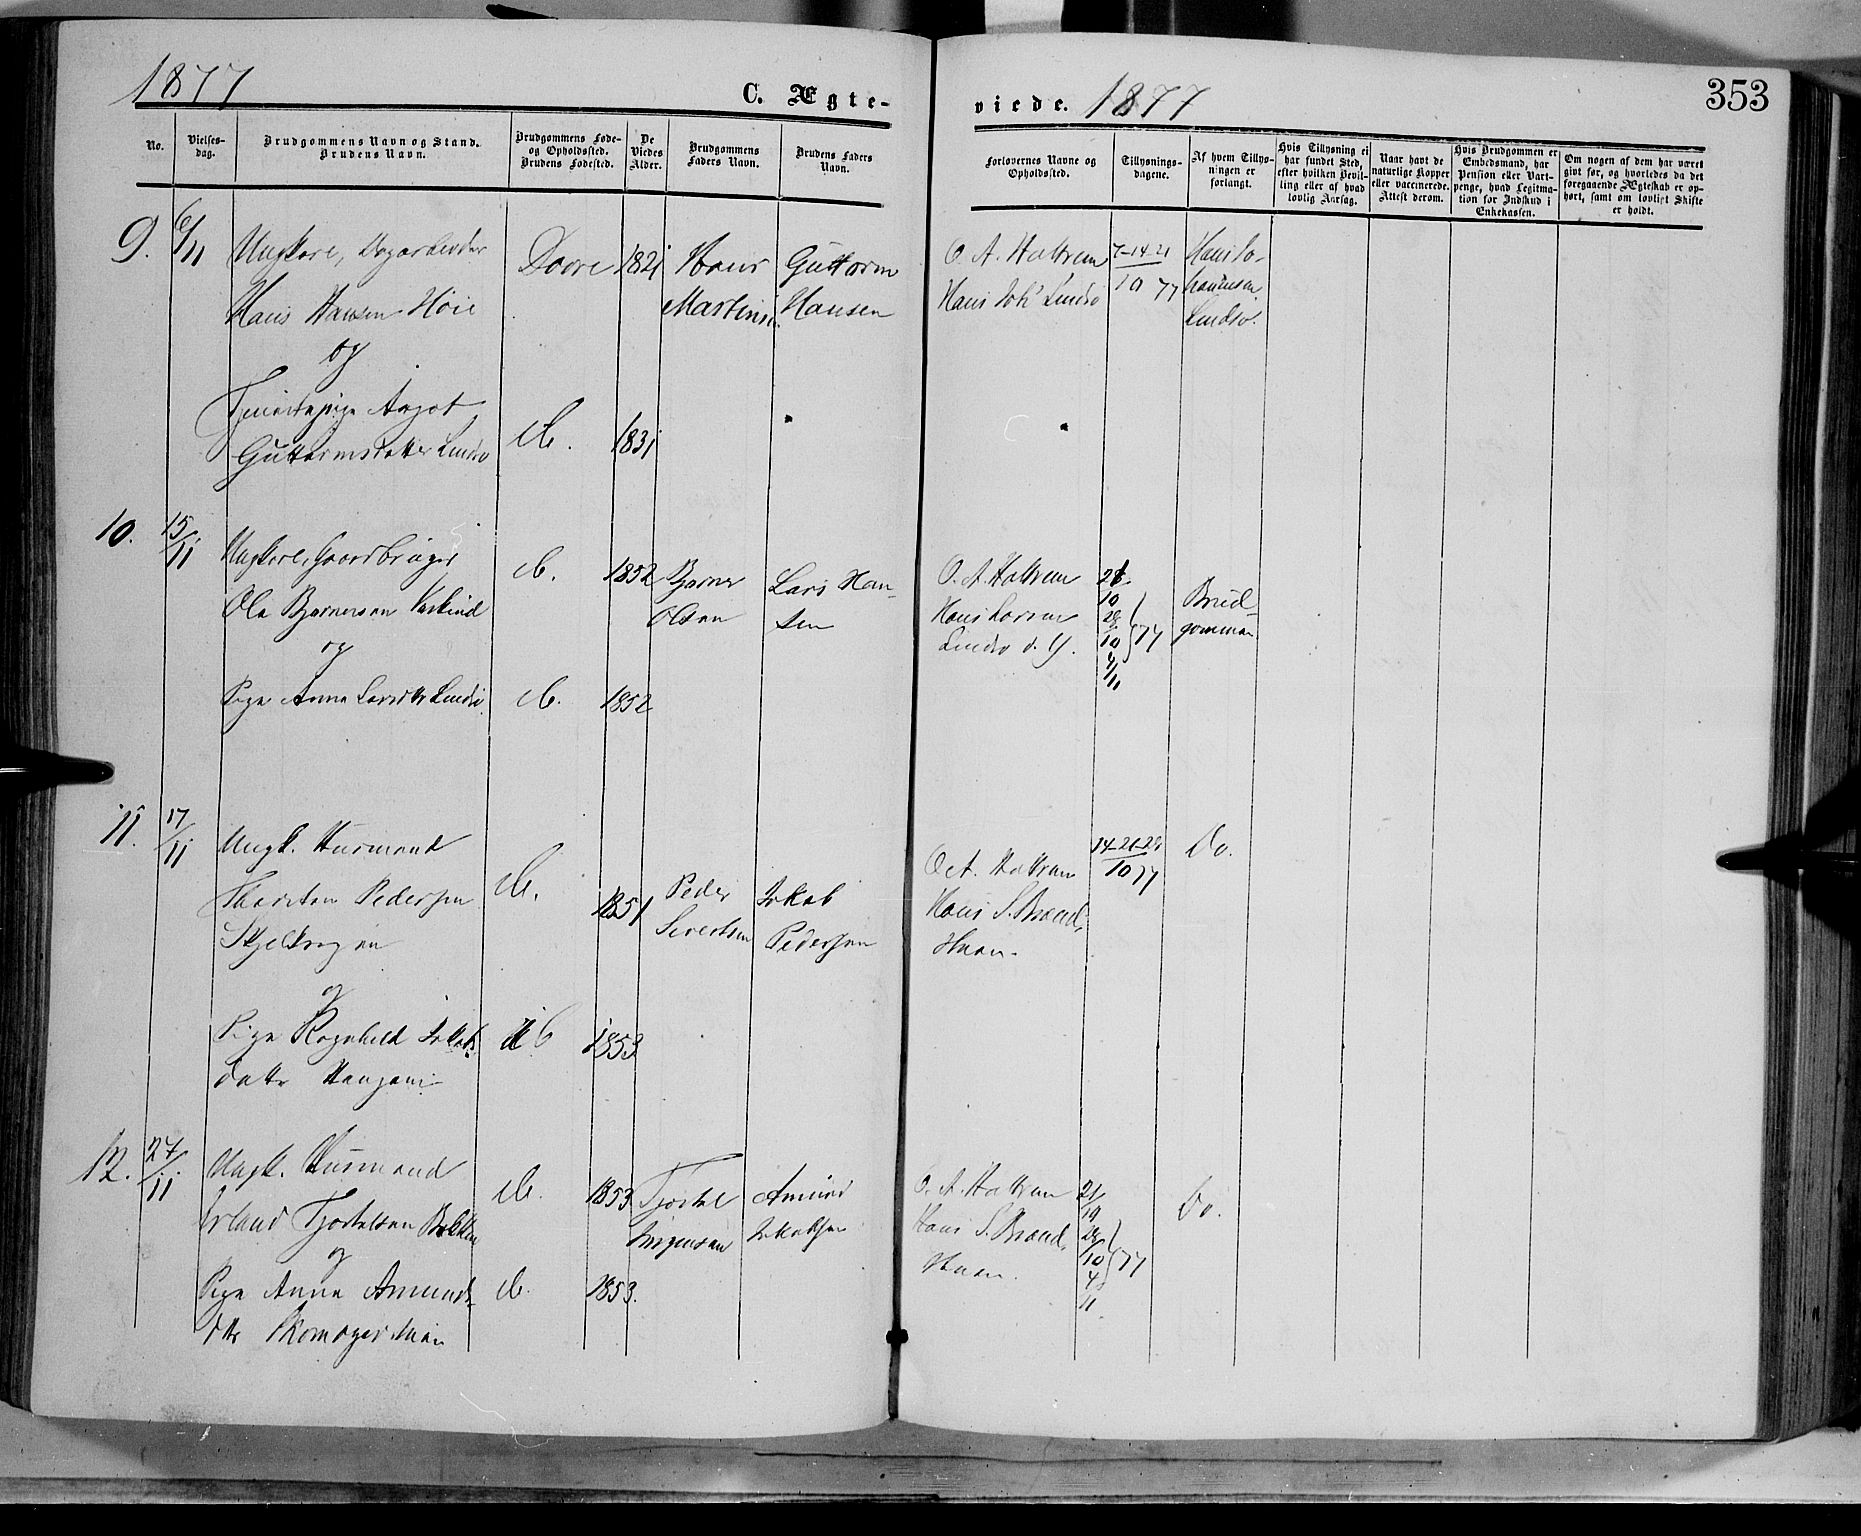 1877
C. Ægte-
viede.
1877
353
No.
Vielses-
dag.
Brudgommens Navn og Stand.
Brudens Navn.
Brudgommens Føde-
og Opholdssted.
Brudens Fødested.
De
Viedes
Alder.
Brudgommens
Faders Navn.
Brudens Faders
Navn.
Forlovernes Navne og
Opholdssted.
Tillysnings-
dagene.
Af hvem Tillys-
ningen er
forlangt.
Hvis Tillysning ei
har fundet Sted,
efter hvilken Bevil-
ling eller af hvad
lovlig Aarsag.
Naar havt de
naturlige Kopper
eller vaccinerede.
Attest derom.
Hvis Brudgommen er
Embedsmand, har
Pension eller Vart-
penge, hvad Legitima-
tion for Indskud i
Enkekassen.
Om nogen af dem har været
gift før, og hvorledes da det
foregaaende Ægteskab er op-
hørt, samt om lovligt Skifte
er holdt.
9. 6/11
Ungkare, Dagarbeider
Hans Hansen Høie
og
Tjenestepige Aagot
Guttormsdatter Lindsø
Dovre
do.
1821
1831
Hans
Martins.
Guttorm
Hansen
O. A. Hattrem
Hans Joh Lindsø
7-14-21
10 77
Hans Jo-
hannesen
Lindsø.
10. 15/11
Ungkare, Gaardbruger
Ole Bjørnersen
og
Pige Anna Larsdtr Lindsø
do.
do.
1852
1852
Bjørner
Olsen
Lars Han-
sen
O. A. Hattrem
Hans Larsen
Lindsø d. Y.
21
10
28
10
4/11
77
Brud-
gommen
11. 17/11
Ungk. Husmand
Thorsten Pedersen
og
Pige Ragnhild Jakobs
datter
do.
do
1851
1853
Peder
Sivertsen
Jakob
Pedersen
O. A. Hattrem
Hans S. Brænd-
Huen.
14-21-28
10 77
Do.
12. 27/11
Ungk. Husmand
Erland Tjostelsen Bakken
og
Pige Anna Amunds-
dtr
do.
do.
1853
1853.
Tjostel
Jørgensen
Amund
Jakobsen
O. A. Hattrem
Hans S. Brænd-
Huen.
21/
10
28
/10
4
11
77
Do.